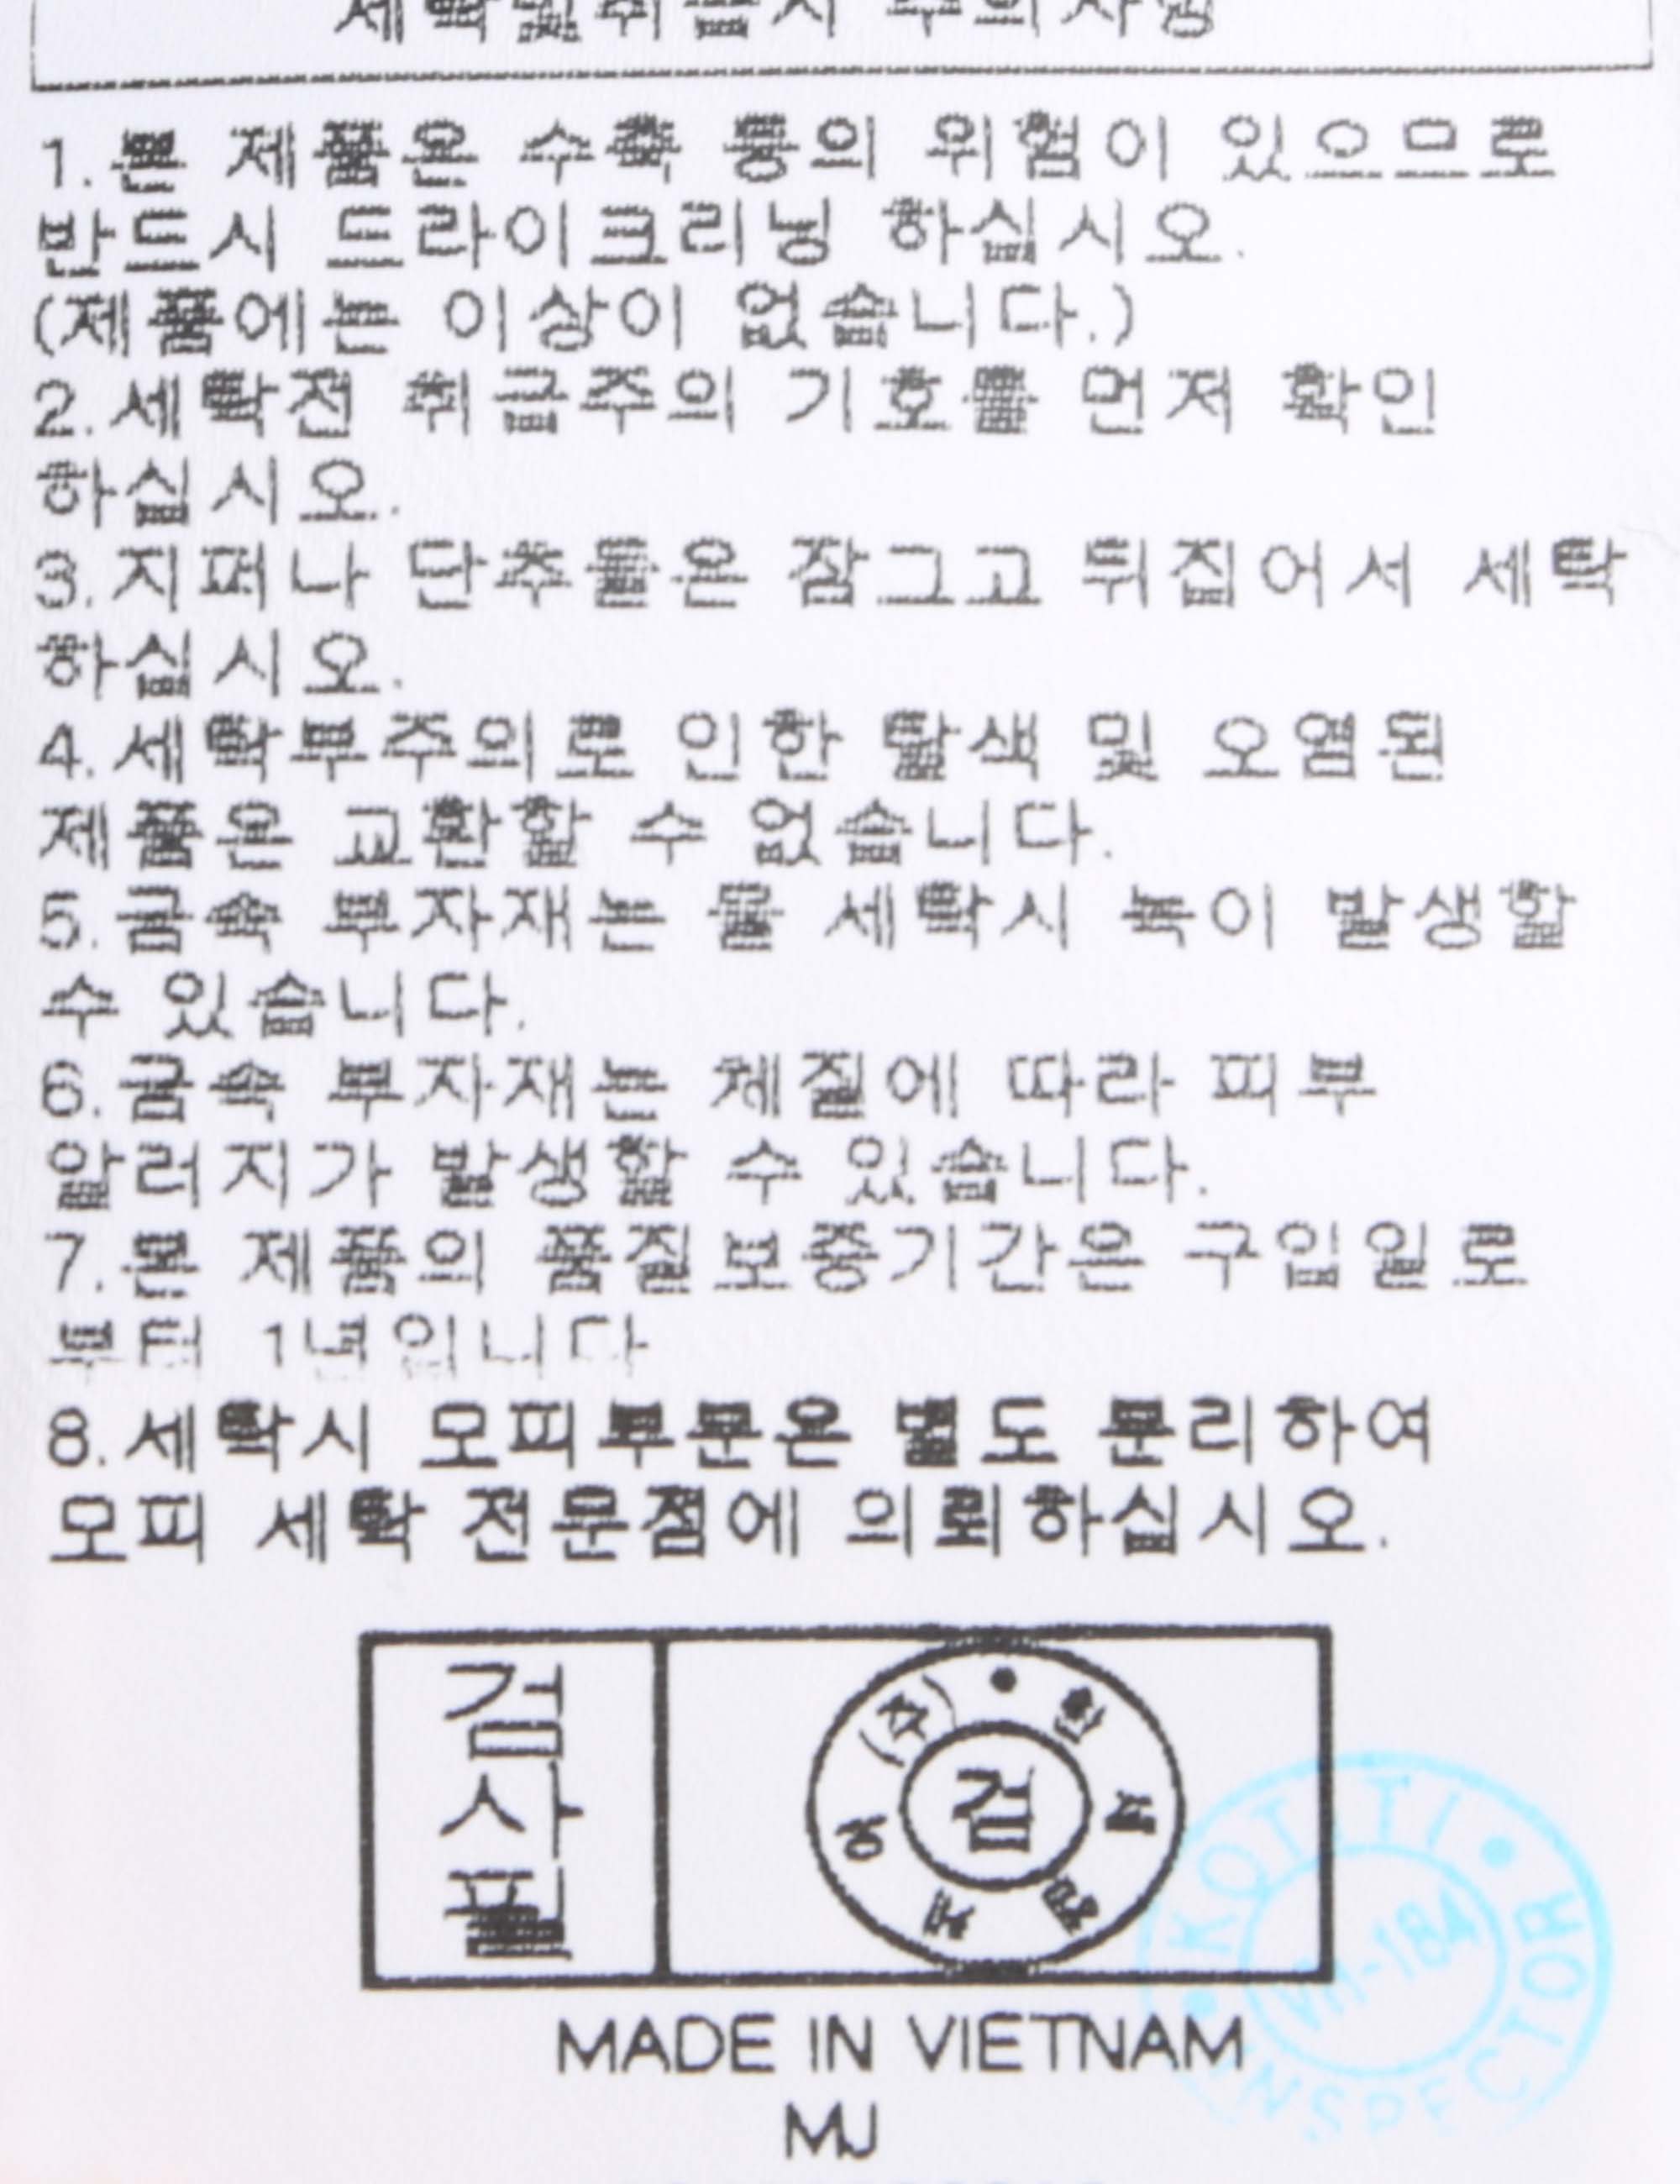 세탁및취급시 주의사항
1.본 제품은 수축 등의 위험이 있으므로
반드시 드라이크리닝 하십시오.
(제품에는 이상이 없습니다.)
2.세탁전 취급주의 기호를 먼저 확인
하십시오.
3.지퍼나 단추들은 잠그고 뒤집어서 세탁
하십시오.
4.세탁부주의로 인한 탈색 및 오염된
제품은 교환할 수 없습니다.
5.금속 부자재는 물 세탁시 녹이 발생할
수 있습니다.
6.금속 부자재는 체질에 따라 피부
알러지가 발생할 수 있습니다.
7.본 제품의 품질보증기간은 구입일로
부터 1년입니다
8.세탁시 모피부분은 별도 분리하여
모피 세탁 전문점에 의뢰하십시오.
검사필
(주)
검
KOTITI INSPECTOR
VN-184
MADE IN VIETNAM
MJ